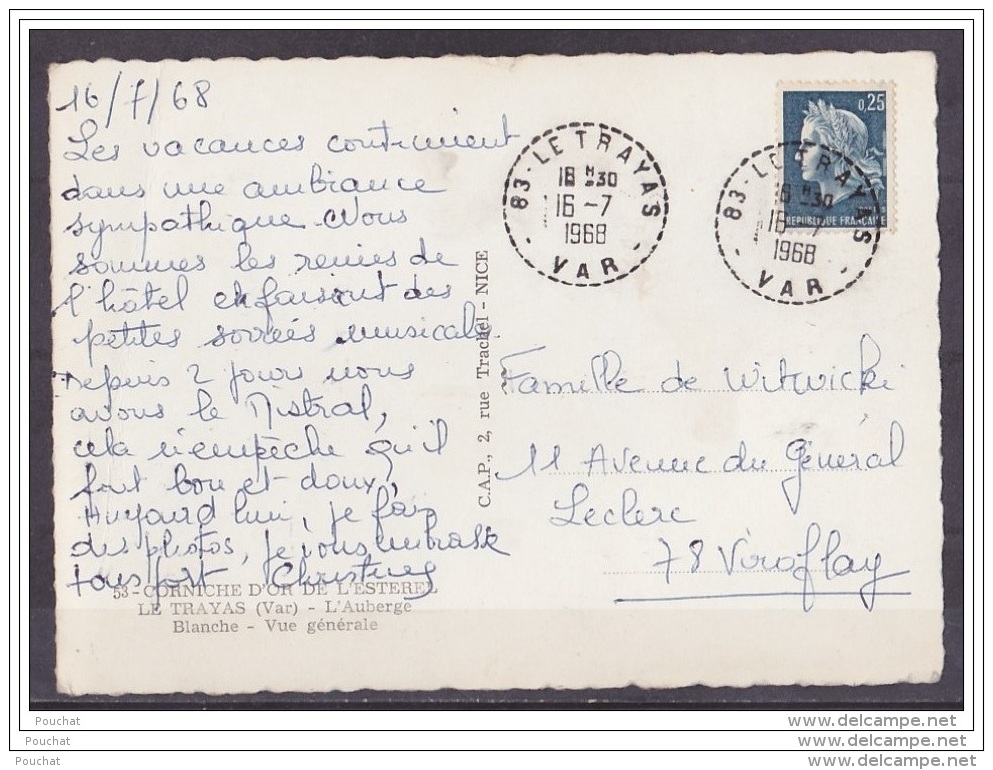 16/7/68
Les vacances continuent
dans une ambiance
sympathique. Nous
sommes les reines de
l'hôtel en faisant des
petites soirées musicales.
Depuis 2 jours nous
avons le Mistral,
cela n'empêche qu'il
fait bon et doux,
Aujourd'hui, je fais
des photos, je vous embrasse
tous fort
53 - CORNICHE D'OR DE L'ESTEREL
LE TRAYAS (Var) - L'Auberge
Blanche - Vue générale
C.A.P., 2, rue Trachel - NICE
83 - LE TRAYAS
16 H 30
16 - 7
1968
- VAR -
0,25
REPUBLIQUE FRANCAISE
83 - LE TRAYAS
16 H 30
16 - 7
1968
- VAR -
Famille de Witwicki
11 Avenue du Général
Leclerc
78 Viroflay
Pouchat
Pouchat
Pouchat
www.delcampe.net
www.delcampe.net
www.delcampe.net